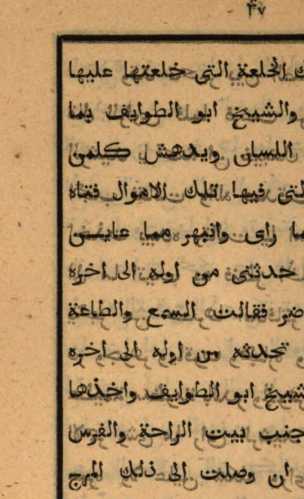 ٣٧
الخلعة التى خلعتها عليها
والشيخ ابو الطوايف بما
اللسان ويدهش كلمن
فيها تلك الاموال فتاه
راى وانبهر مما عايــن
حدثنى من اوله الى اخره
فقالت السمع والطاعة
تحدثه من اوله الى اخره
ابو الطوايف واخذها
جنب بيت الراحة والفرس
ان وصلت الى ذلك المرج